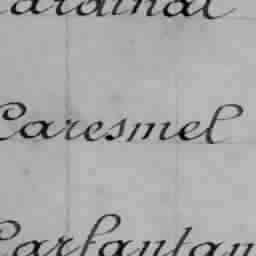 Cardinal
Caresmel
Carfantan